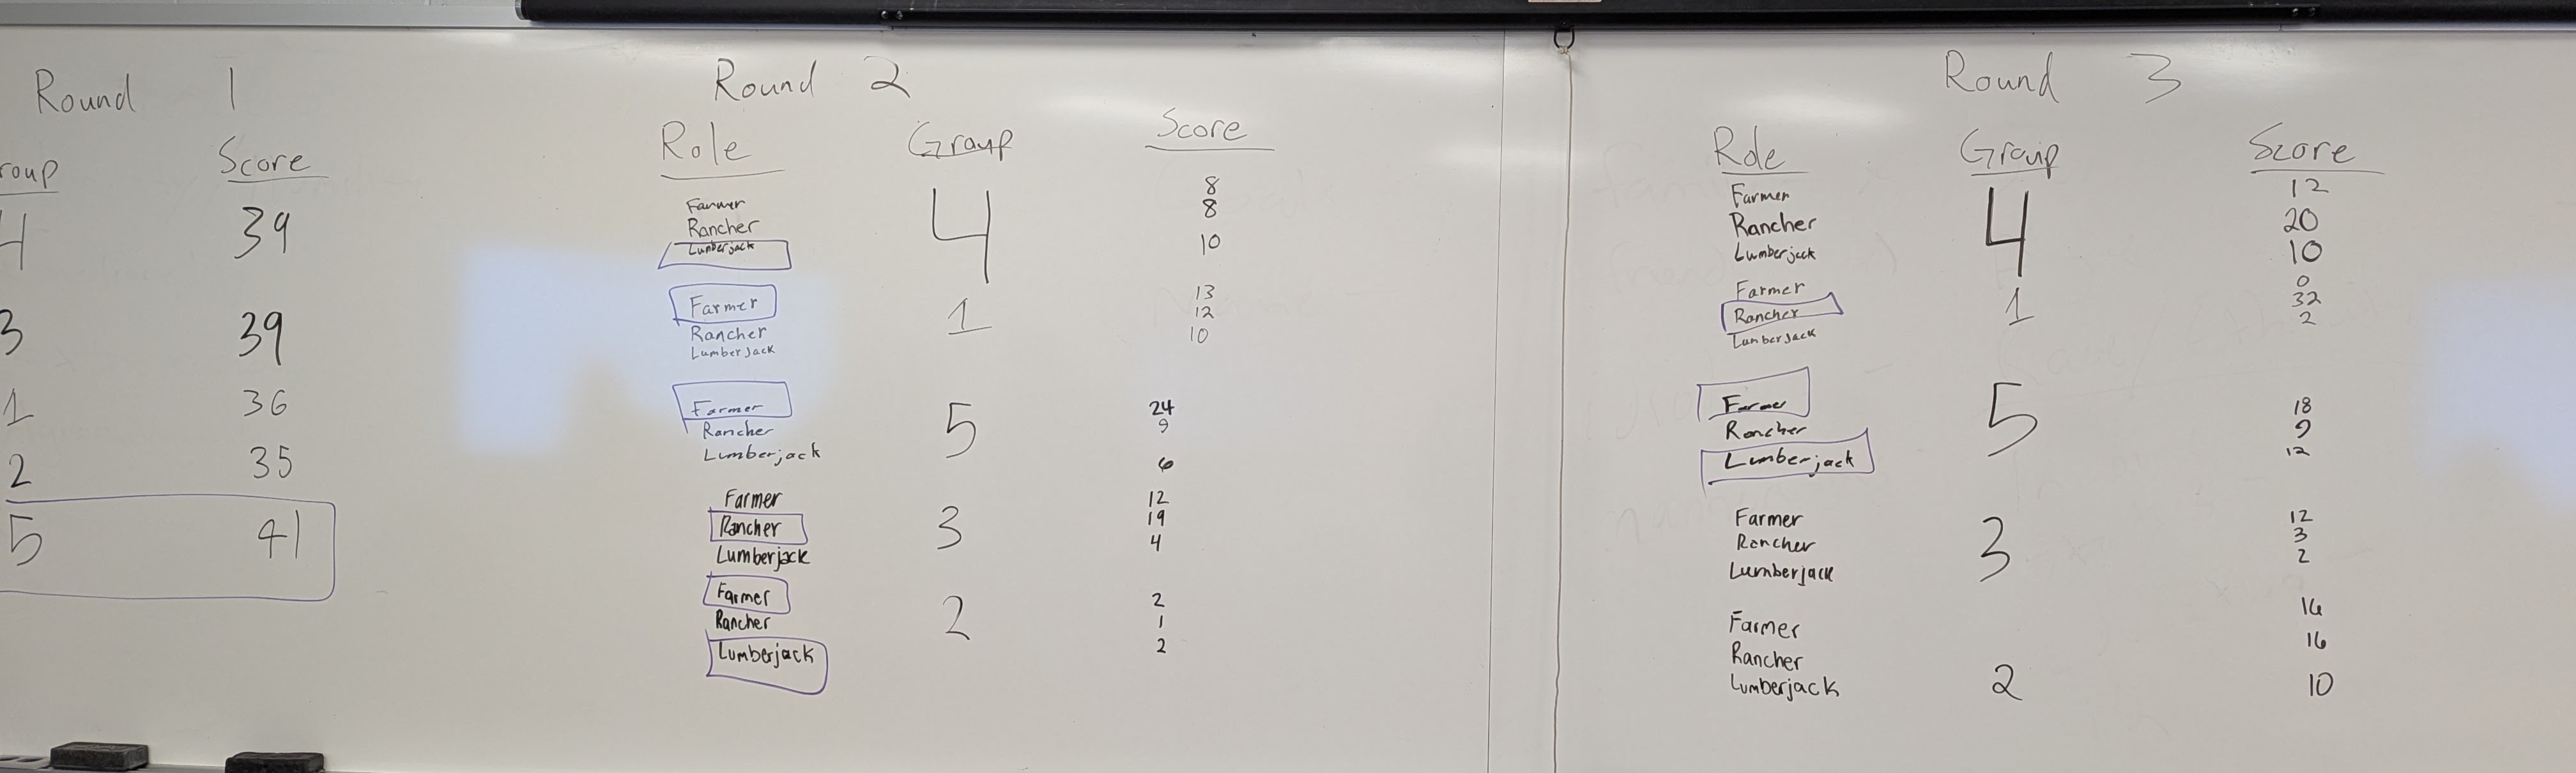 Round 1
roup Score
4 39
3 39
1 36
2 35
5 41
Round 2
Role Group Score
Farmer 8
Rancher 4 8
Lumberjack 10
Farmer 13
Rancher 1 12
Lumberjack 10
Farmer 24
Rancher 5 9
Lumberjack 6
Farmer 12
Rancher 3 19
Lumberjack 4
Farmer 2
Rancher 2 1
Lumberjack 2
Round 3
Role Group Score
Farmer 12
Rancher 4 20
Lumberjack 10
Farmer 0
Rancher 1 32
Lumberjack 2
Farmer 18
Rancher 5 9
Lumberjack 12
Farmer 12
Rancher 3 3
Lumberjack 2
Farmer 16
Rancher 16
Lumberjack 2 10